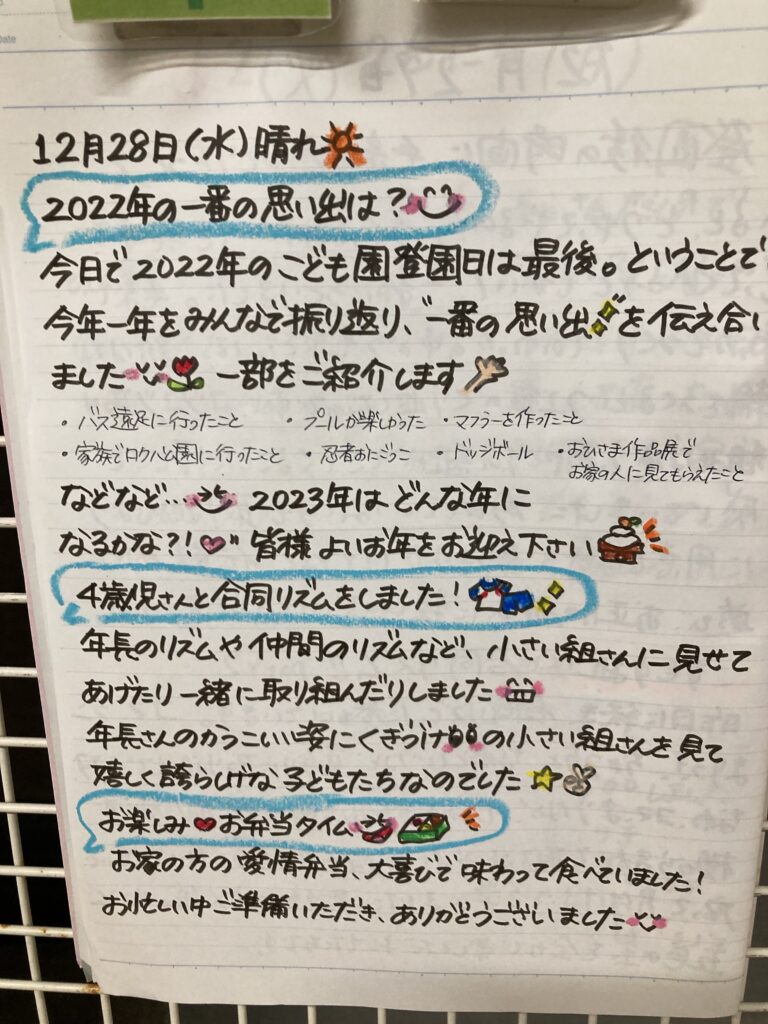 12月28日(水)晴れ
2022年の一番の思い出は?
今日で2022年のこども園登園日は最後。ということで
今年一年をみんなで振り返り、"一番の思い出"を伝え合い
ました 一部をご紹介します
・バス遠足に行ったこと ・プールが楽しかった ・マフラーを作ったこと
・家族でロクハ公園に行ったこと ・忍者おにごっこ ・ドッジボール ・おひさま作品展で
お家の人に見てもらえたこと
などなど… 2023年はどんな年に
なるかな?! 皆様よいお年をお迎え下さい
4歳児さんと合同リズムをしました!
年長のリズムや仲間のリズムなど、小さい組さんに見せて
あげたり一緒に取り組んだりしました
年長さんのかっこいい姿にくぎづけの小さい組さんを見て
嬉しく誇らしげな子どもたちなのでした
お楽しみ♥お弁当タイム
お家の方の愛情弁当、大喜びで味わって食べていました!
お忙しい中ご準備いただき、ありがとうございました